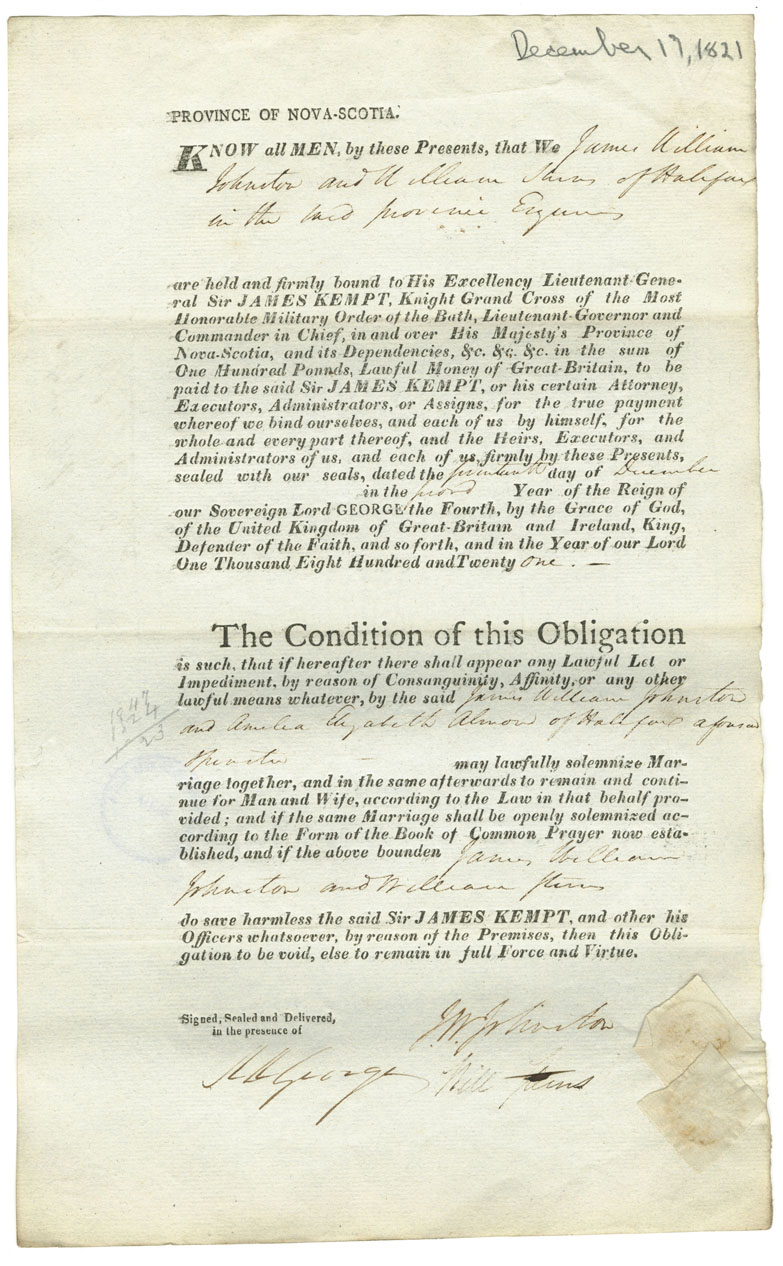 December 17, 1821
PROVINCE OF NOVA-SCOTIA.
KNOW all MEN, by these Presents, that We James William
Johnston and William of Halifax
in the said province Esquires
are held and firmly bound to His Excellency Lieutenant-Gene-
ral Sir JAMES KEMPT, Knight Grand Cross of the Most
Honorable Military Order of the Bath, Lieutenant-Governor and
Commander in Chief, in and over His Majesty's Province of
Nova-Scotia, and its Dependencies, &c. &c. &c. in the sum of
One Hundred Ponnds, Lawful Money of Great-Britain, to be
paid to the said Sir JAMES KEMPT, or his certain Attorney,
Executors, Administrators, or Assigns, for the true payment
whereof we bind ourselves, and each of us by himself, for the
whole and every part thereof, and the Heirs, Executors, and
Administrators of us, and each of us firmly by these Presents,
sealed with our seals, dated the day of December
in the Year of the Reign of
our Sovereign Lord GEORGE the Fourth, by the Grace of God,
of the United Kingdom of Great-Britain and Ireland, King,
Defender of the Faith, and so forth, and in the Year of our Lord
One Thousand Eight Hundred and Twenty one. —
The Condition of this Obligation
is such, that if hereafter there shall appear any Lawful Let or
Impediment, by reason of Consanguinity, Affinity, or any other
lawful means whatever, by the said James William Johnston
and Amelia Elizabeth Almon of Halifax aforesaid
Spinster may lawfully solemnize Mar-
riage together, and in the same afterwards to remain and conti-
nue for Man and Wife, according to the Law in that behalf pro-
vided; and if the same Marriage shall be openly solemnized ac-
cording to the Form of the Book of Common Prayer now esta-
blished, and if the above bounden James William
Johnston and William
do save harmless the said Sir JAMES KEMPT, and other his
Officers whatsoever, by reason of the Premises, then this Obli-
gation to be void, else to remain in full Force and Virtue.
Signed, Sealed and Delivered,
in the presence of
J W Johnston
George
Will